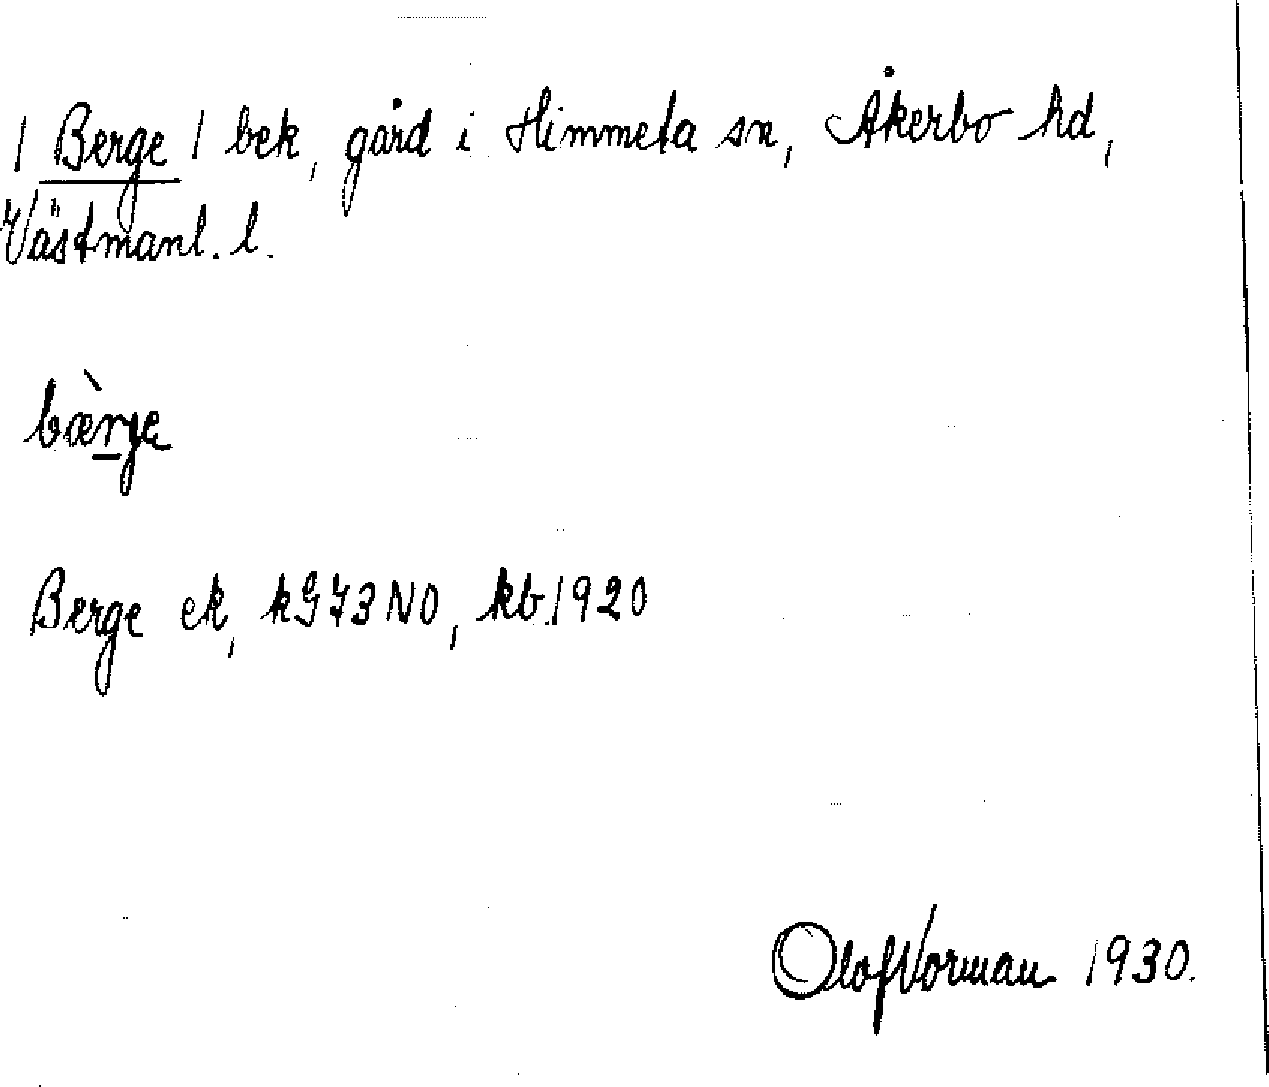 / Berge / bek, gård i Himmeta sn, Åkerbo hd,
Västmanl. l.
bæ̀rge
Berge ek, kG73NO, kb.1920
Olof Vorman 1930.